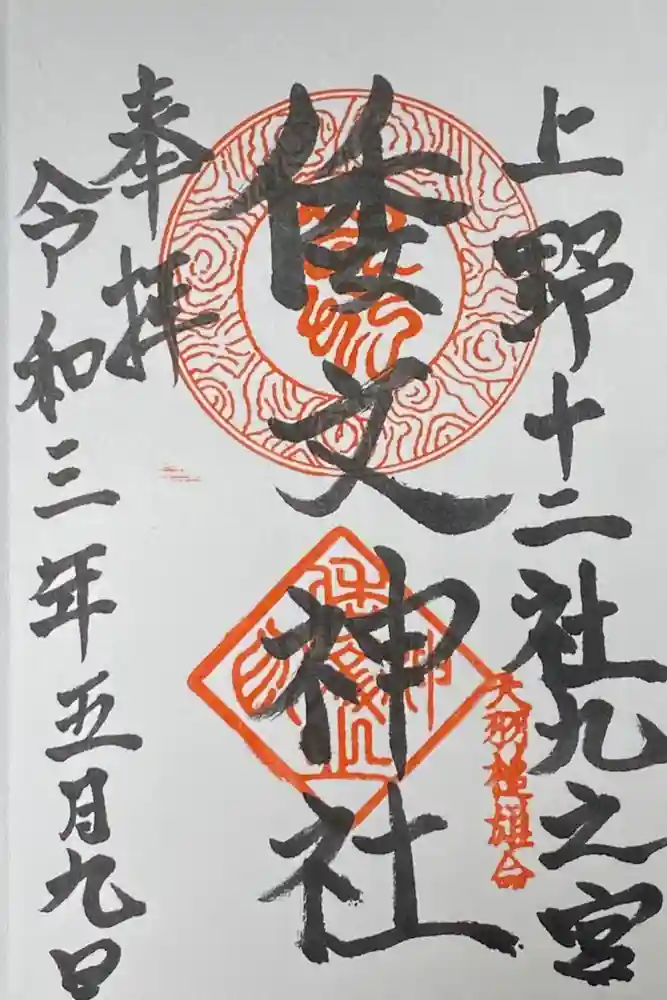 上野十二社九之宮
倭文神社
奉拝
令和三年五月九日